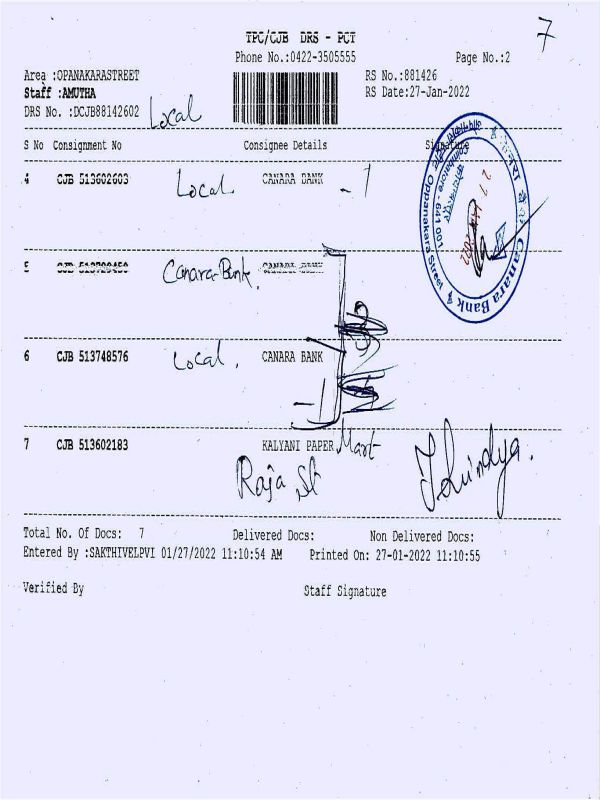 TPC/CJB DRS - PCT
7
Phone No.:0422-3505555 Page No.:2
Area :OPANAKARASTREET RS No.:881426
Staff :AMUTHA RS Date:27-Jan-2022
DRS No. :DCJB88142602 Local
S No Consignment No Consignee Details Signature
4 CJB 513602603 Local. CANARA BANK - 1
5 CJB Canara Bank. CANARA BANK
6 CJB 513748576 Local. CANARA BANK
- 1
7 CJB 513602183 KALYANI PAPER Mart
Raja St
Canara Bank
Oppanakara Street
641 001
Total No. Of Docs: 7 Delivered Docs: Non Delivered Docs:
Entered By :SAKTHIVELPVI 01/27/2022 11:10:54 AM Printed On: 27-01-2022 11:10:55
Verified By Staff Signature